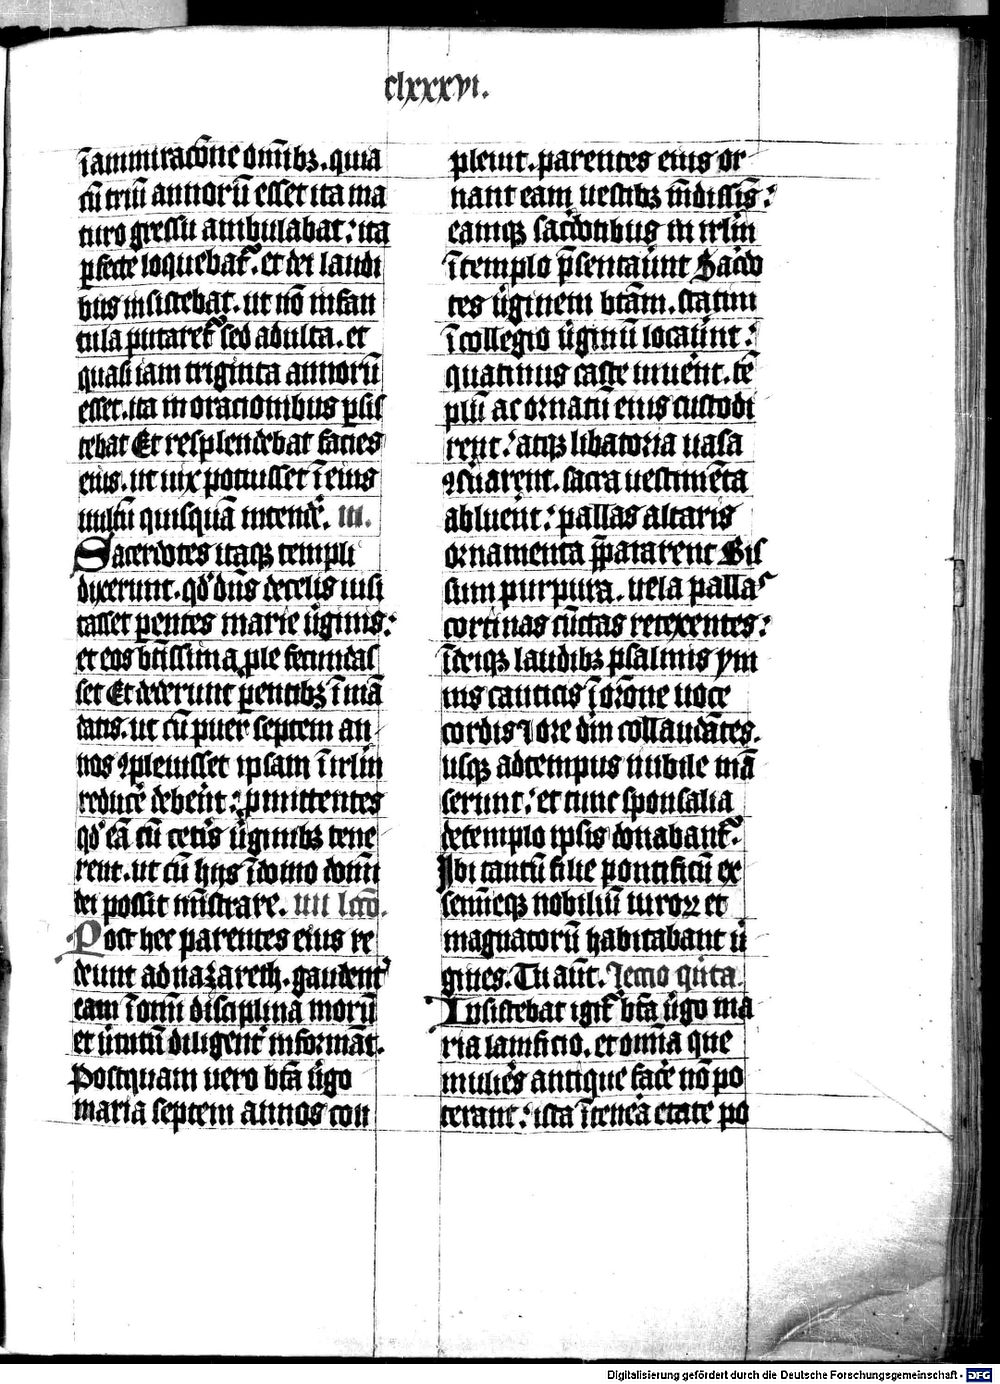 clxxxvi.
i᷃ ammiraco᷃ne om̄ibꝫ. quia
cū triū annorū esset ita ma
turo gressu ambulabat: ita
ꝑfecte loquebat᷑. et dei laudi
bus insistebat. ut nō infan
tula putaret᷑ sed adulta. et
quasi iam triginta annorū
esset. ita in oracionibus ꝑsis
tebat Et resplendebat facies
eius. ut uix potuisset ī eius
uultū quisquā intende᷑. iii.
Sacerdotes itaqꝫ templi
dixerunt. qd̕ dn̄s de celis uisi
tasset ꝑentes marie ūginis:
et eos btīssima ꝓle fecundas
set Et dederunt ꝑentibꝫ ī mā
datis. ut cū puer septem an
nos ꝯpleuisset ipsam ī irlm̄
reduce᷑ deberīt: ꝓmittentes
qd̕ eā cū cet᷑is ūginibꝫ tene
rent. ut cū hijs ī domo domī
dei possit mīstrare. iiii lcc̄o.
Post hec parentes eius re
deunt ad nazareth. gaudent᷑
eam ī omī disciplina morū
et ūtutū diligent᷑ informāt.
Postquam uero btā ūgo
maria septem annos con
pleuit. parentes eius or
nant eam uestibꝫ mūdissīs:
eamqꝫ sac̕dotibus in irlm̄
ī templo p̄sentauūt Sac̕do
tes ūginem btām. statim
ī collegio ūginū locauūt:
quatinus caste uiuēnt. tē
plū ac ornatū eius custodi
rent: atqꝫ libatoria uasa
ꝯsuarent. sacra uestimēta
abluēnt: pallas altaris
ornamenta p̄pararent Bis
sum purpura. uela pallas
cortinas cūctas retexentes:
ī deiqꝫ laudibꝫ psalmis ym
nis canticis ī ōone uoce
cordis ⁊ ore dm̄ collaudātes.
usqꝫ ad tempus nubile mā
serunt: et tunc sponsalia
de templo ipsis donabant᷑.
Ibi tantū filie pontificū ex
semīeqꝫ nobiliū uiroꝝ et
magnatorū habitabant ū
gines. Tu aūt. lectio qīta.
Insistebat igit᷑ btā ūgo ma
ria lanificio. et omīa que
mulies antique face᷑ nō po
terant: ista ī tenera etate po
Digitalisierung gefördert durch die Deutsche Forschungsgemeinschaft - DFG